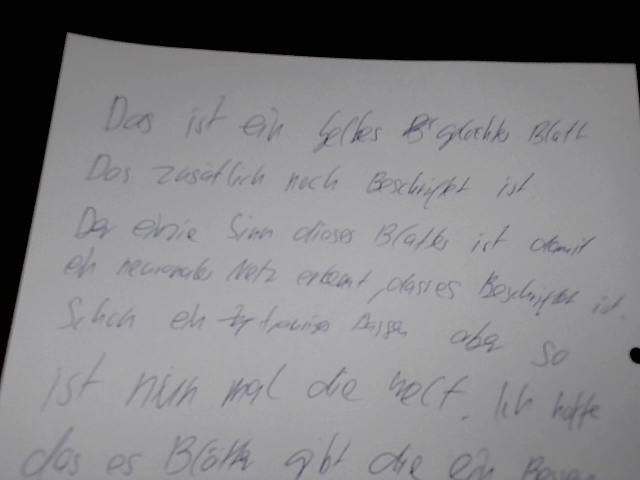 Das ist ein gelbes Blatt
Das zusätlich noch Beschriftet ist
Der einzie Sinn dieses Blattes ist damit
ein neuronales Netz erkennt, dass es Beschriftet ist.
Schon ein trauriges aber so
ist nun mal die Welt. Ich hoffe
das es Blätter gibt die ein